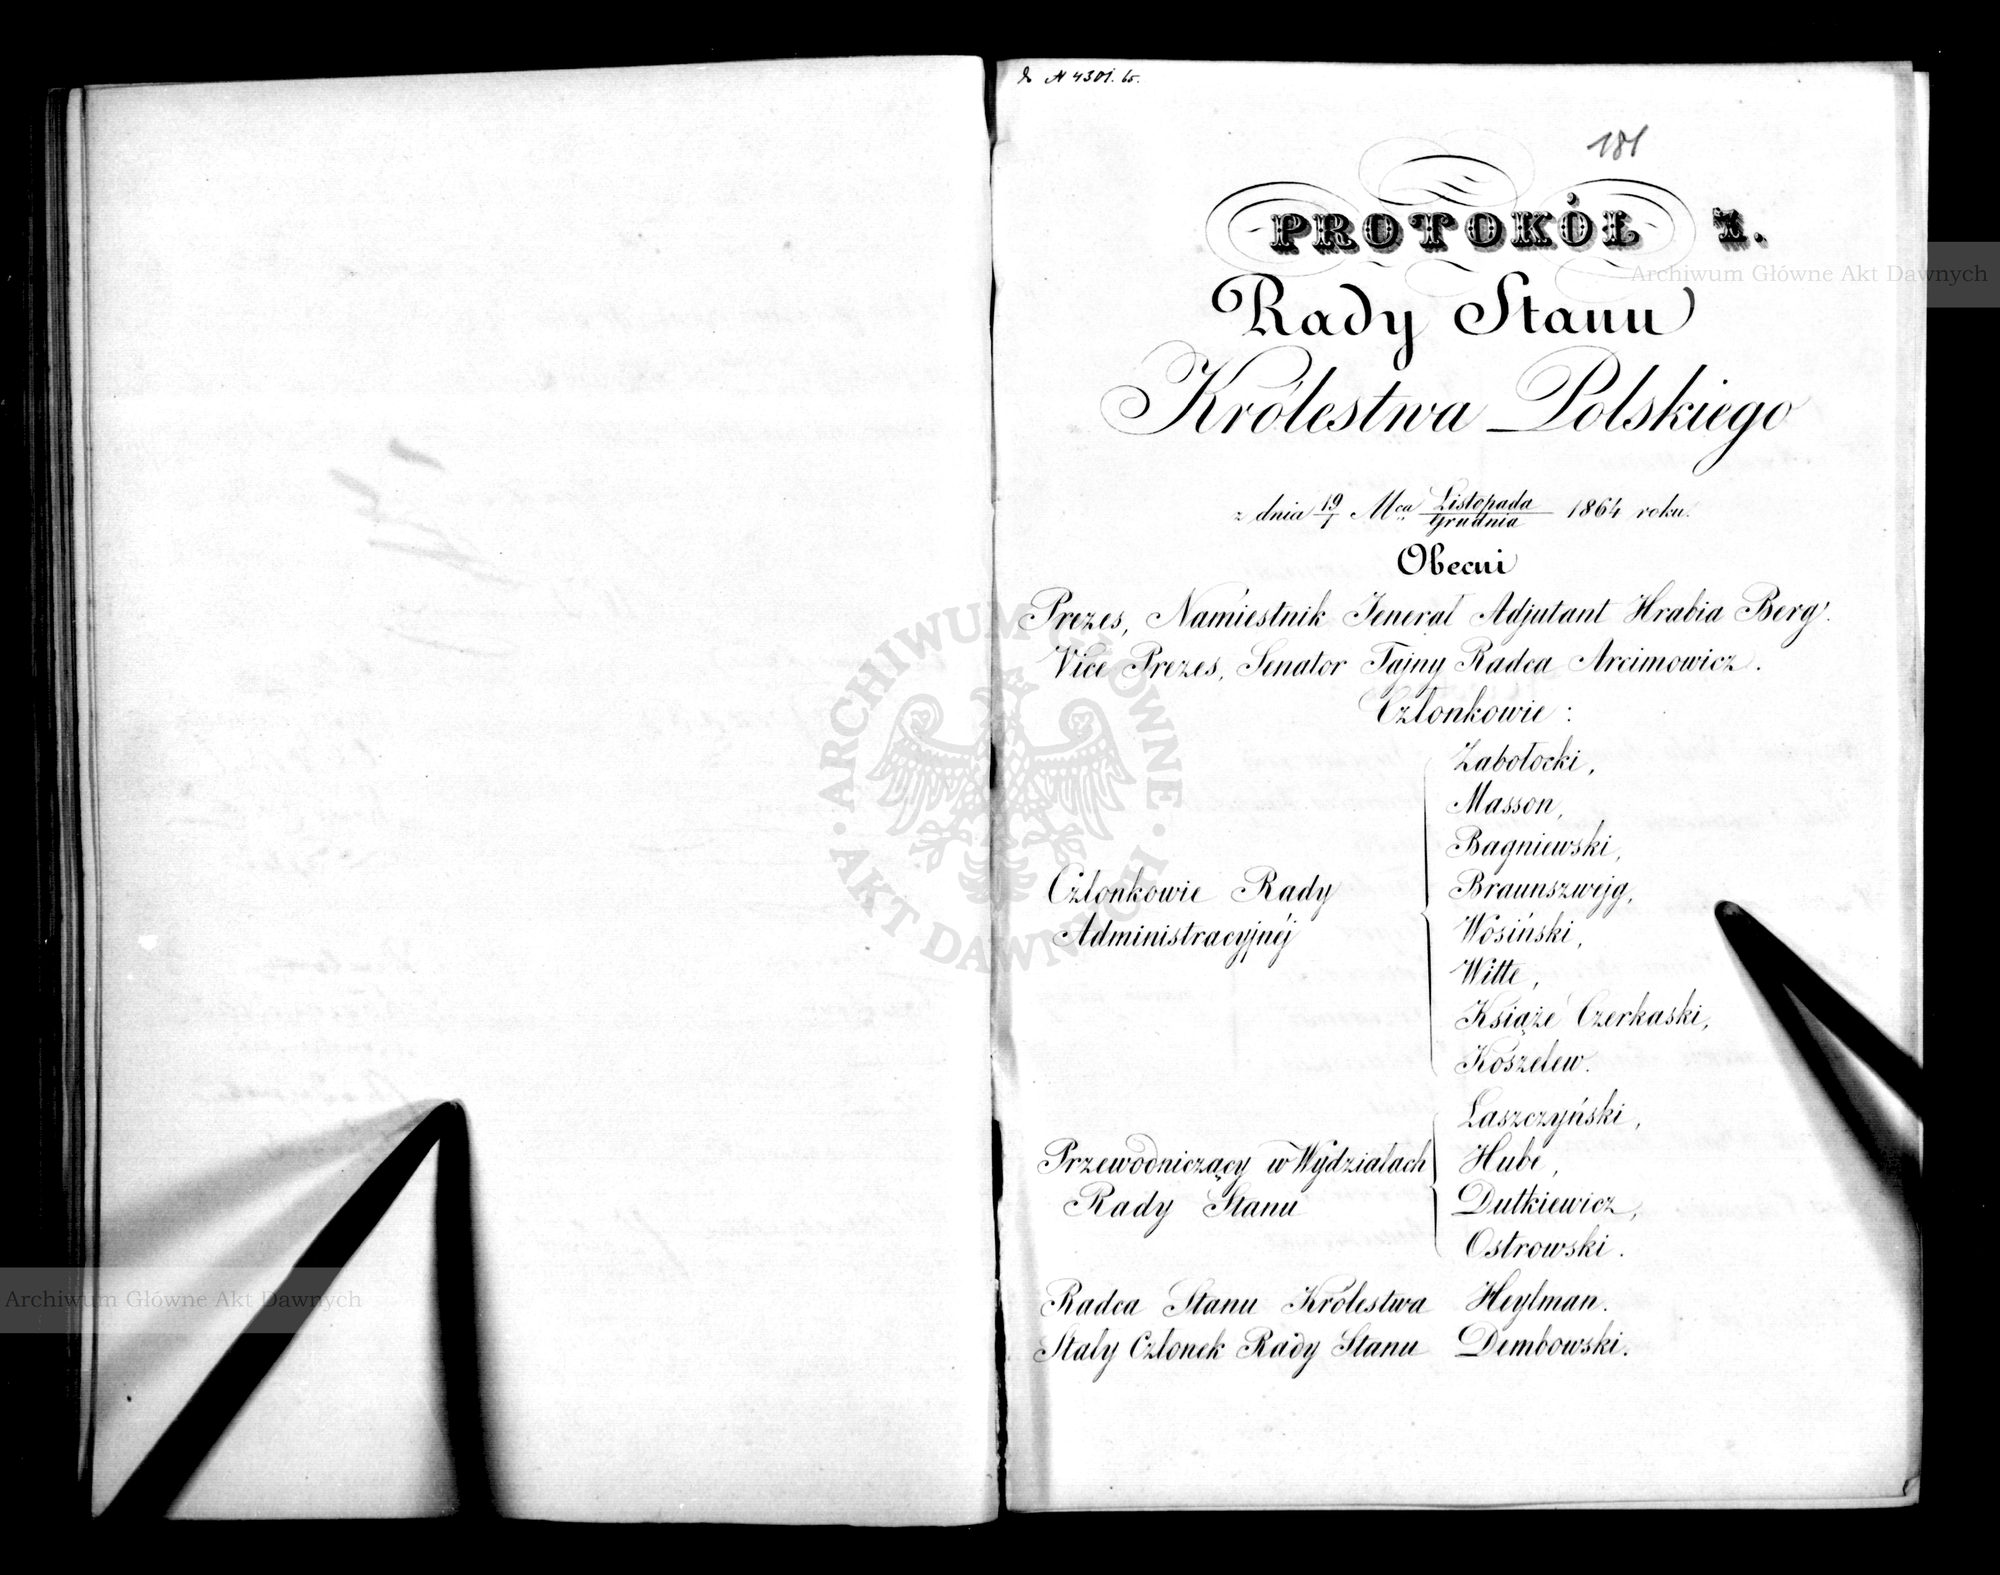 N 4301.
181
PROTOKÓŁ 7.
Rady Stanu
Królestwa Polskiego
z dnia 19/1 Mca Listopada/Grudnia 1864 roku.
Obecni
Prezes, Namiestnik Jenerał Adjutant Hrabia Berg.
Vice Prezes, Senator Tajny Radca Arcimowicz.
Członkowie:
Członkowie Rady
Administracyjnéj
Zabołocki,
Masson,
Bagniewski,
Braunszwejg,
Wosiński,
Witte,
Książe Czerkaski,
Koszelew.
Przewodniczący w Wydziałach
Rady Stanu
Łaszczyński,
Hube,
Dutkiewicz,
Ostrowski.
Radca Stanu Królestwa Heylman.
Stały Członek Rady Stanu Dembowski.
Archiwum Główne Akt Dawnych
ARCHIWUM GŁÓWNE
AKT DAWNYCH
Archiwum Główne Akt Dawnych